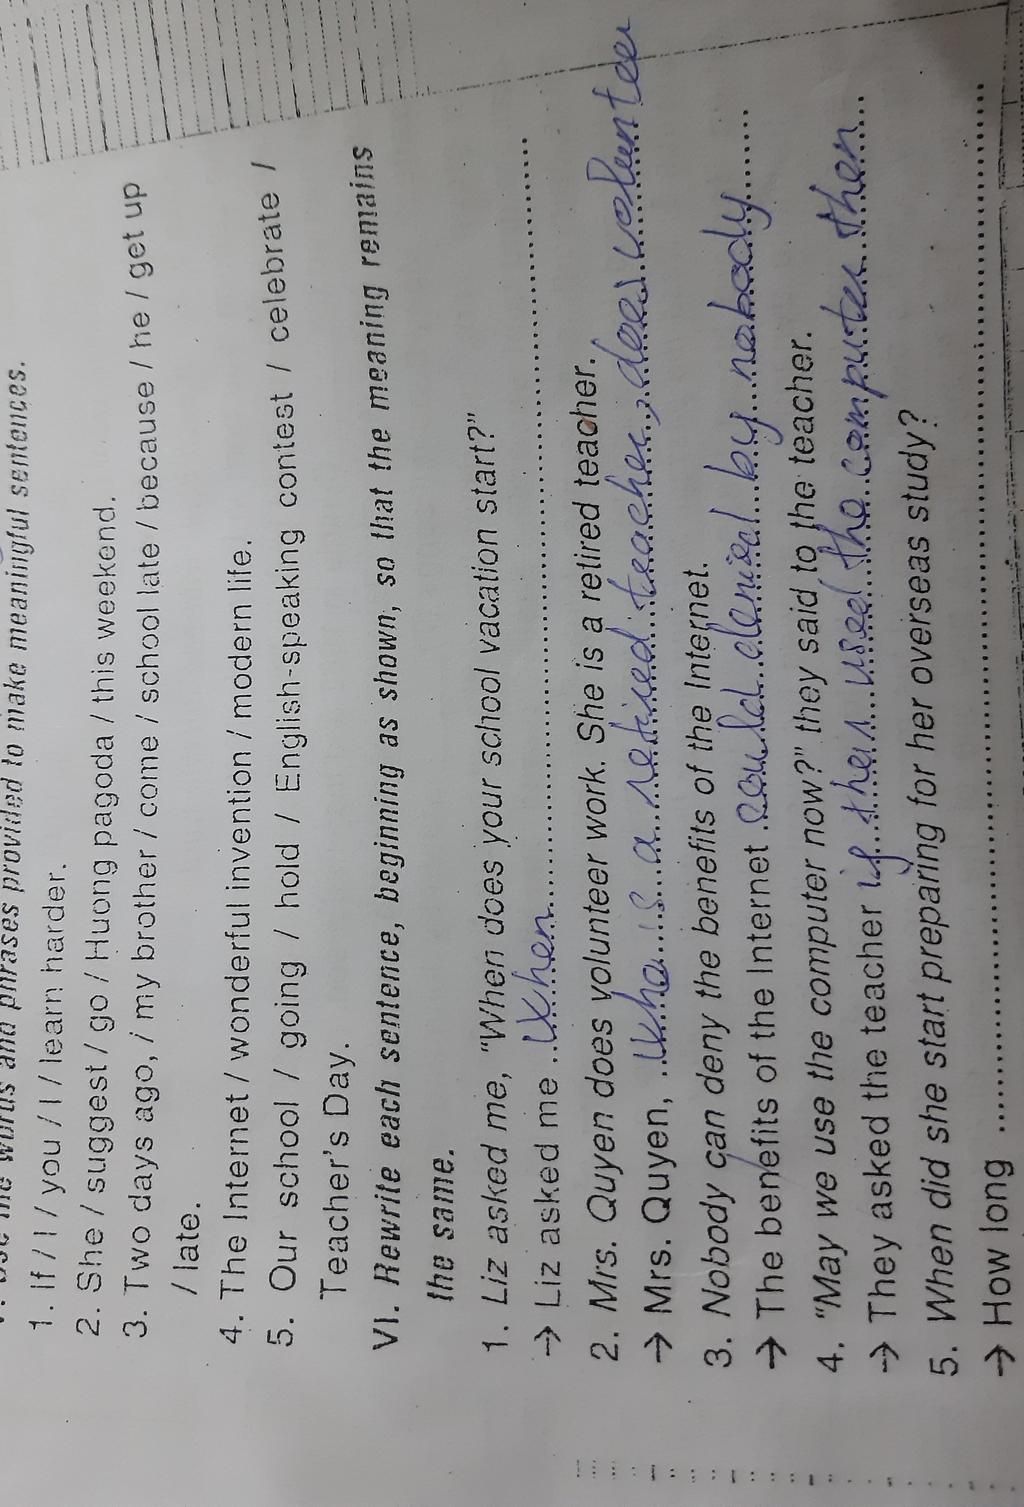 words and phrases provided to make meaningful sentences.
1. If / I / you / I / learn harder.
2. She / suggest / go / Huong pagoda / this weekend.
3. Two days ago, / my brother / come / school late / because / he / get up
/ late.
4. The Internet / wonderful invention / modern life.
5. Our school / going / hold / English-speaking contest / celebrate /
Teacher's Day.
VI. Rewrite each sentence, beginning as shown, so that the meaning remains
the same.
1. Liz asked me, "When does your school vacation start?"
→ Liz asked me ..When............
2. Mrs. Quyen does volunteer work. She is a retired teacher.
→ Mrs. Quyen, ..who is a retired teacher, does volunteer
3. Nobody can deny the benefits of the Internet.
→ The benefits of the Internet could denied by nobody......
4. "May we use the computer now?" they said to the teacher.
→ They asked the teacher if they used the computer then...
5. When did she start preparing for her overseas study?
→ How long ............